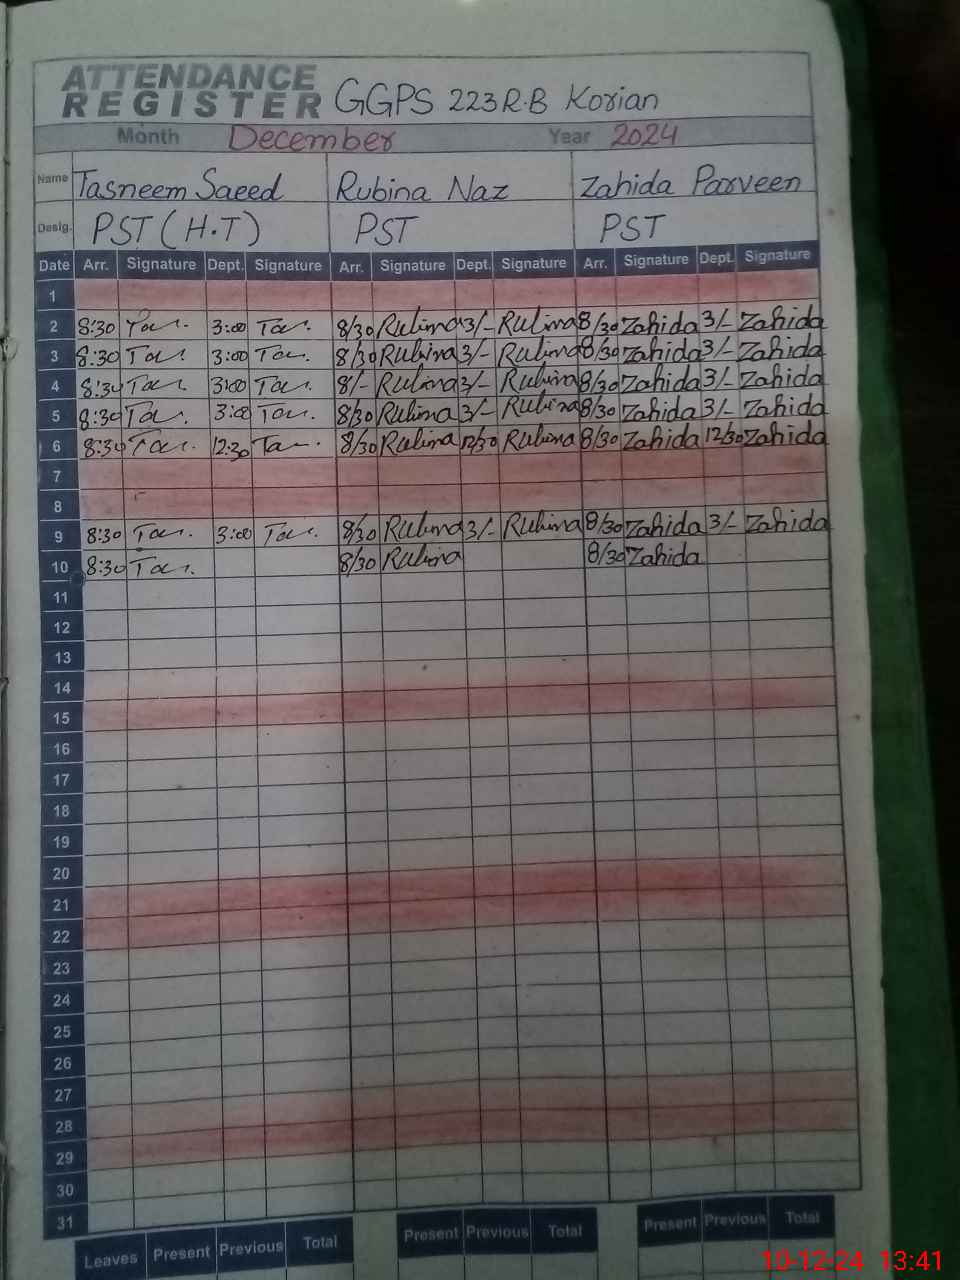 ATTENDANCE
REGISTER GGPS 223 R.B Korian
Month December Year 2024
Name Tasneem Saeed Rubina Naz Zahida Parveen
Desig. PST (H.T) PST PST
Date Arr. Signature Dept. Signature Arr. Signature Dept. Signature Arr. Signature Dept. Signature
1
2 8:30 Tas. 3:00 Tas. 8/30 Rubina 3/- Rubina 8/30 Zahida 3/- Zahida
3 8:30 Tas 3:00 Tas. 8/30 Rubina 3/- Rubina 8/30 Zahida 3/- Zahida
4 8:30 Tas. 3:00 Tas. 8/- Rubina 3/- Rubina 8/30 Zahida 3/- Zahida
5 8:30 Tas. 3:00 Tas. 8/30 Rubina 3/- Rubina 8/30 Zahida 3/- Zahida
6 8:30 Tas. 12:30 Tas. 8/30 Rubina 12/30 Rubina 8/30 Zahida 12/30 Zahida
7
8
9 8:30 Tas. 3:00 Tas. 8/30 Rubina 3/- Rubina 8/30 Zahida 3/- Zahida
10 8:30 Tas. 8/30 Rubina 8/30 Zahida
11
12
13
14
15
16
17
18
19
20
21
22
23
24
25
26
27
28
29
30
31
Leaves Present Previous Total Present Previous Total Present Previous Total
10-12-24 13:41